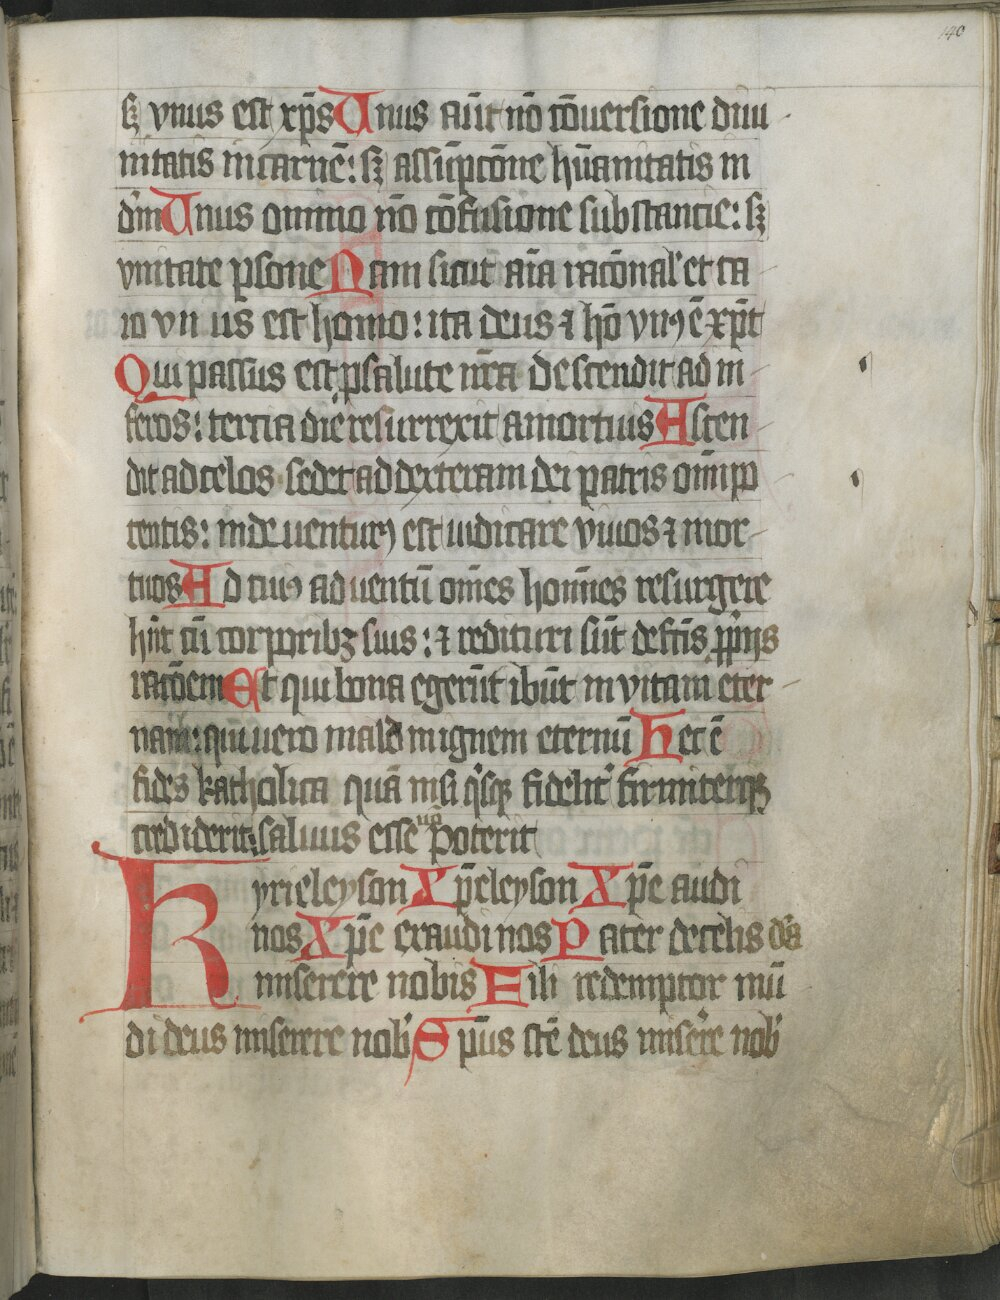 140
sꝫ vnus est xp̄s Unus aūt nō cōuersione diui
nitatis in carnē: sꝫ assūptōne hūanitatis in
dm̄ Unus omnino nō cōfusione substantie: sꝫ
vnitate ꝑsone Nam sicut aīa racōnal' et ca
ro vnus est homo: ita deus ⁊ hō vnꝰ ē xp̄c
Qui passus est ꝓ salute nr̄a descendit ad in
feros: tertia die resurrexit a mortuis Ascen
dit ad celos sedet ad dexteram dei patris om̄ipo
tentis: inde venturꝰ est iudicare viuos ⁊ mor
tuos Ad cuiꝰ aduentū om̄es homīnes resurgere
hn̄t cū corporibꝫ suis: ⁊ reddituri sūt de fc̄is ꝓprijs
racōem Et qui bona egerūt ibūt in vitam eter
nam: qui uero mala in ignem eternū Hec ē
fides katholica quā nisi qͥsqꝫ fidelit' firmiterqꝫ
crediderit: saluus esse nō poterit
Kyrieleyson Xp̄eleyson Xp̄e audi
nos Xp̄e exaudi nos Pater de celis ds̄
miserere nobis Fili redemptor mū
di deus miserere nob' Sp̄us sc̄e deus miser̄e nob'